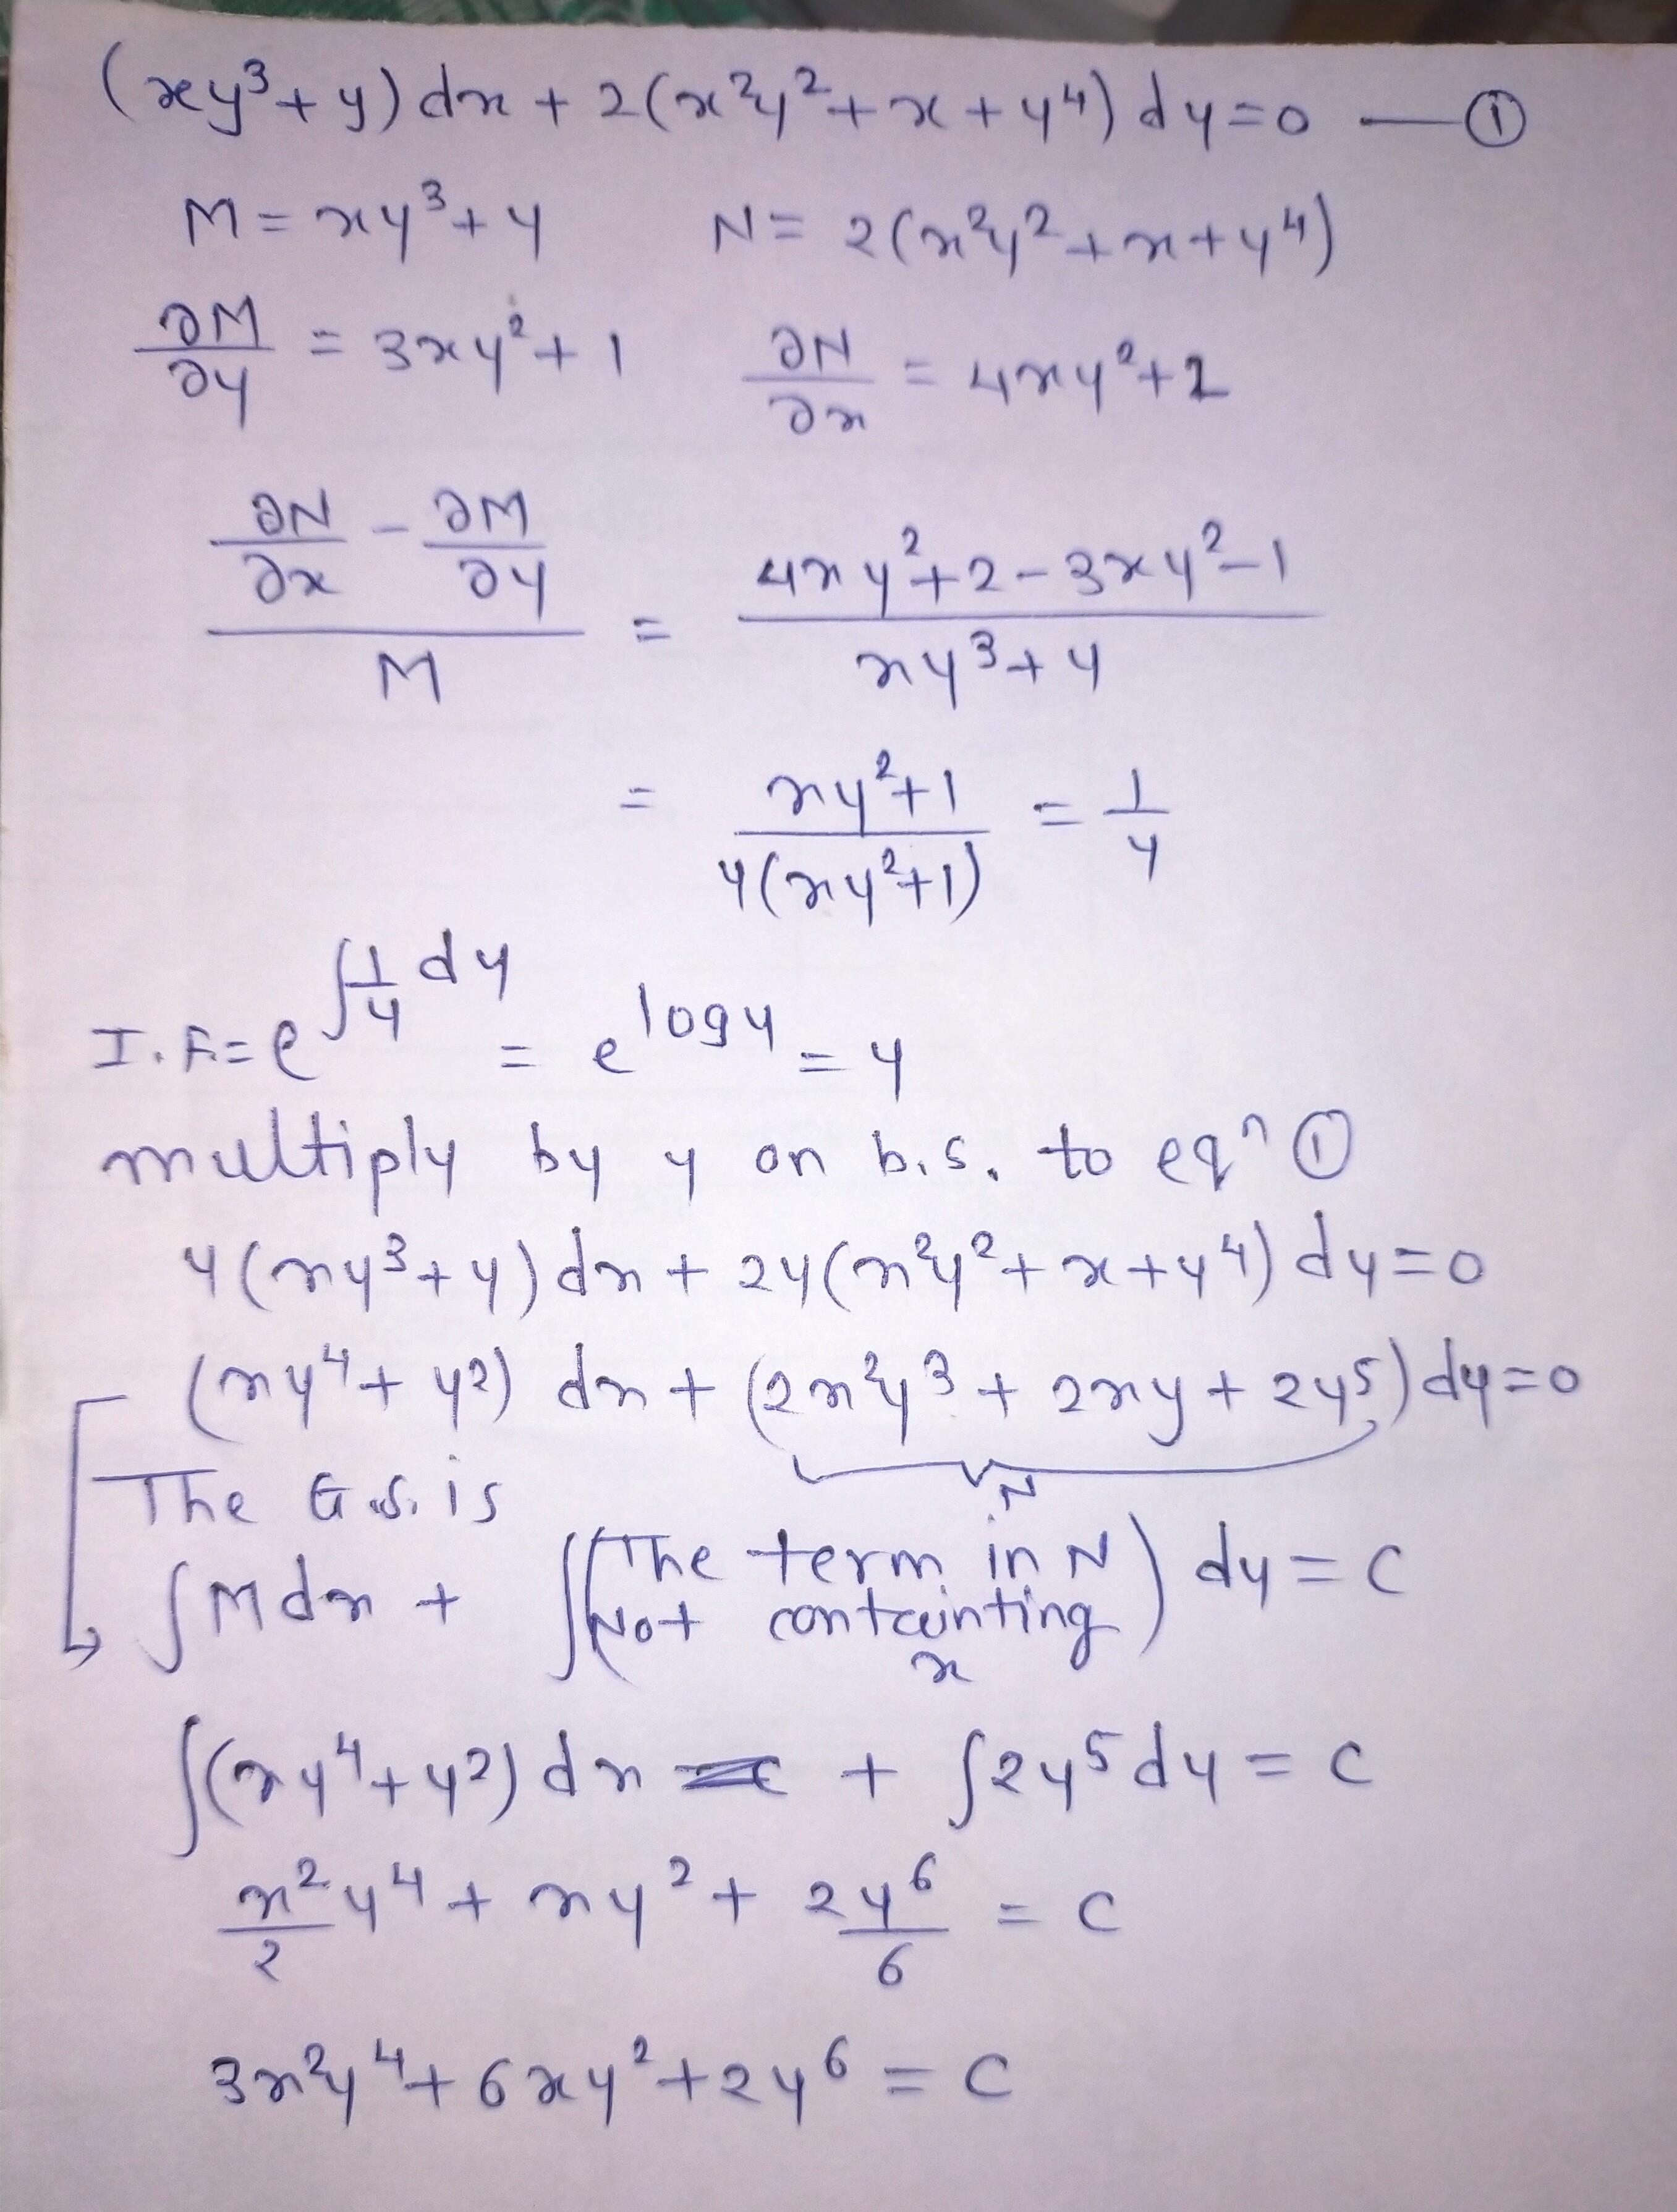 (xy³+y)dx + 2(x²y²+x+y⁴)dy=0 —①
M=xy³+y N= 2(x²y²+x+y⁴)
∂M/∂y = 3xy²+1 ∂N/∂x = 4xy²+2
(∂N/∂x - ∂M/∂y)/M = (4xy²+2-3xy²-1)/(xy³+y)
= (xy²+1)/(y(xy²+1)) = 1/y
I.F.=e^∫(1/y)dy = e^logy = y
multiply by y on b.s. to eqⁿ ①
y(xy³+y)dx + 2y(x²y²+x+y⁴)dy=0
(xy⁴+y²)dx + (2x²y³+2xy+2y⁵)dy=0
N
The G.S. is
∫Mdx + ∫(The term in N Not containting x) dy = c
∫(xy⁴+y²)dx + ∫2y⁵dy = c
x²/2 y⁴ + xy² + 2y⁶/6 = c
3x²y⁴+6xy²+2y⁶ = c